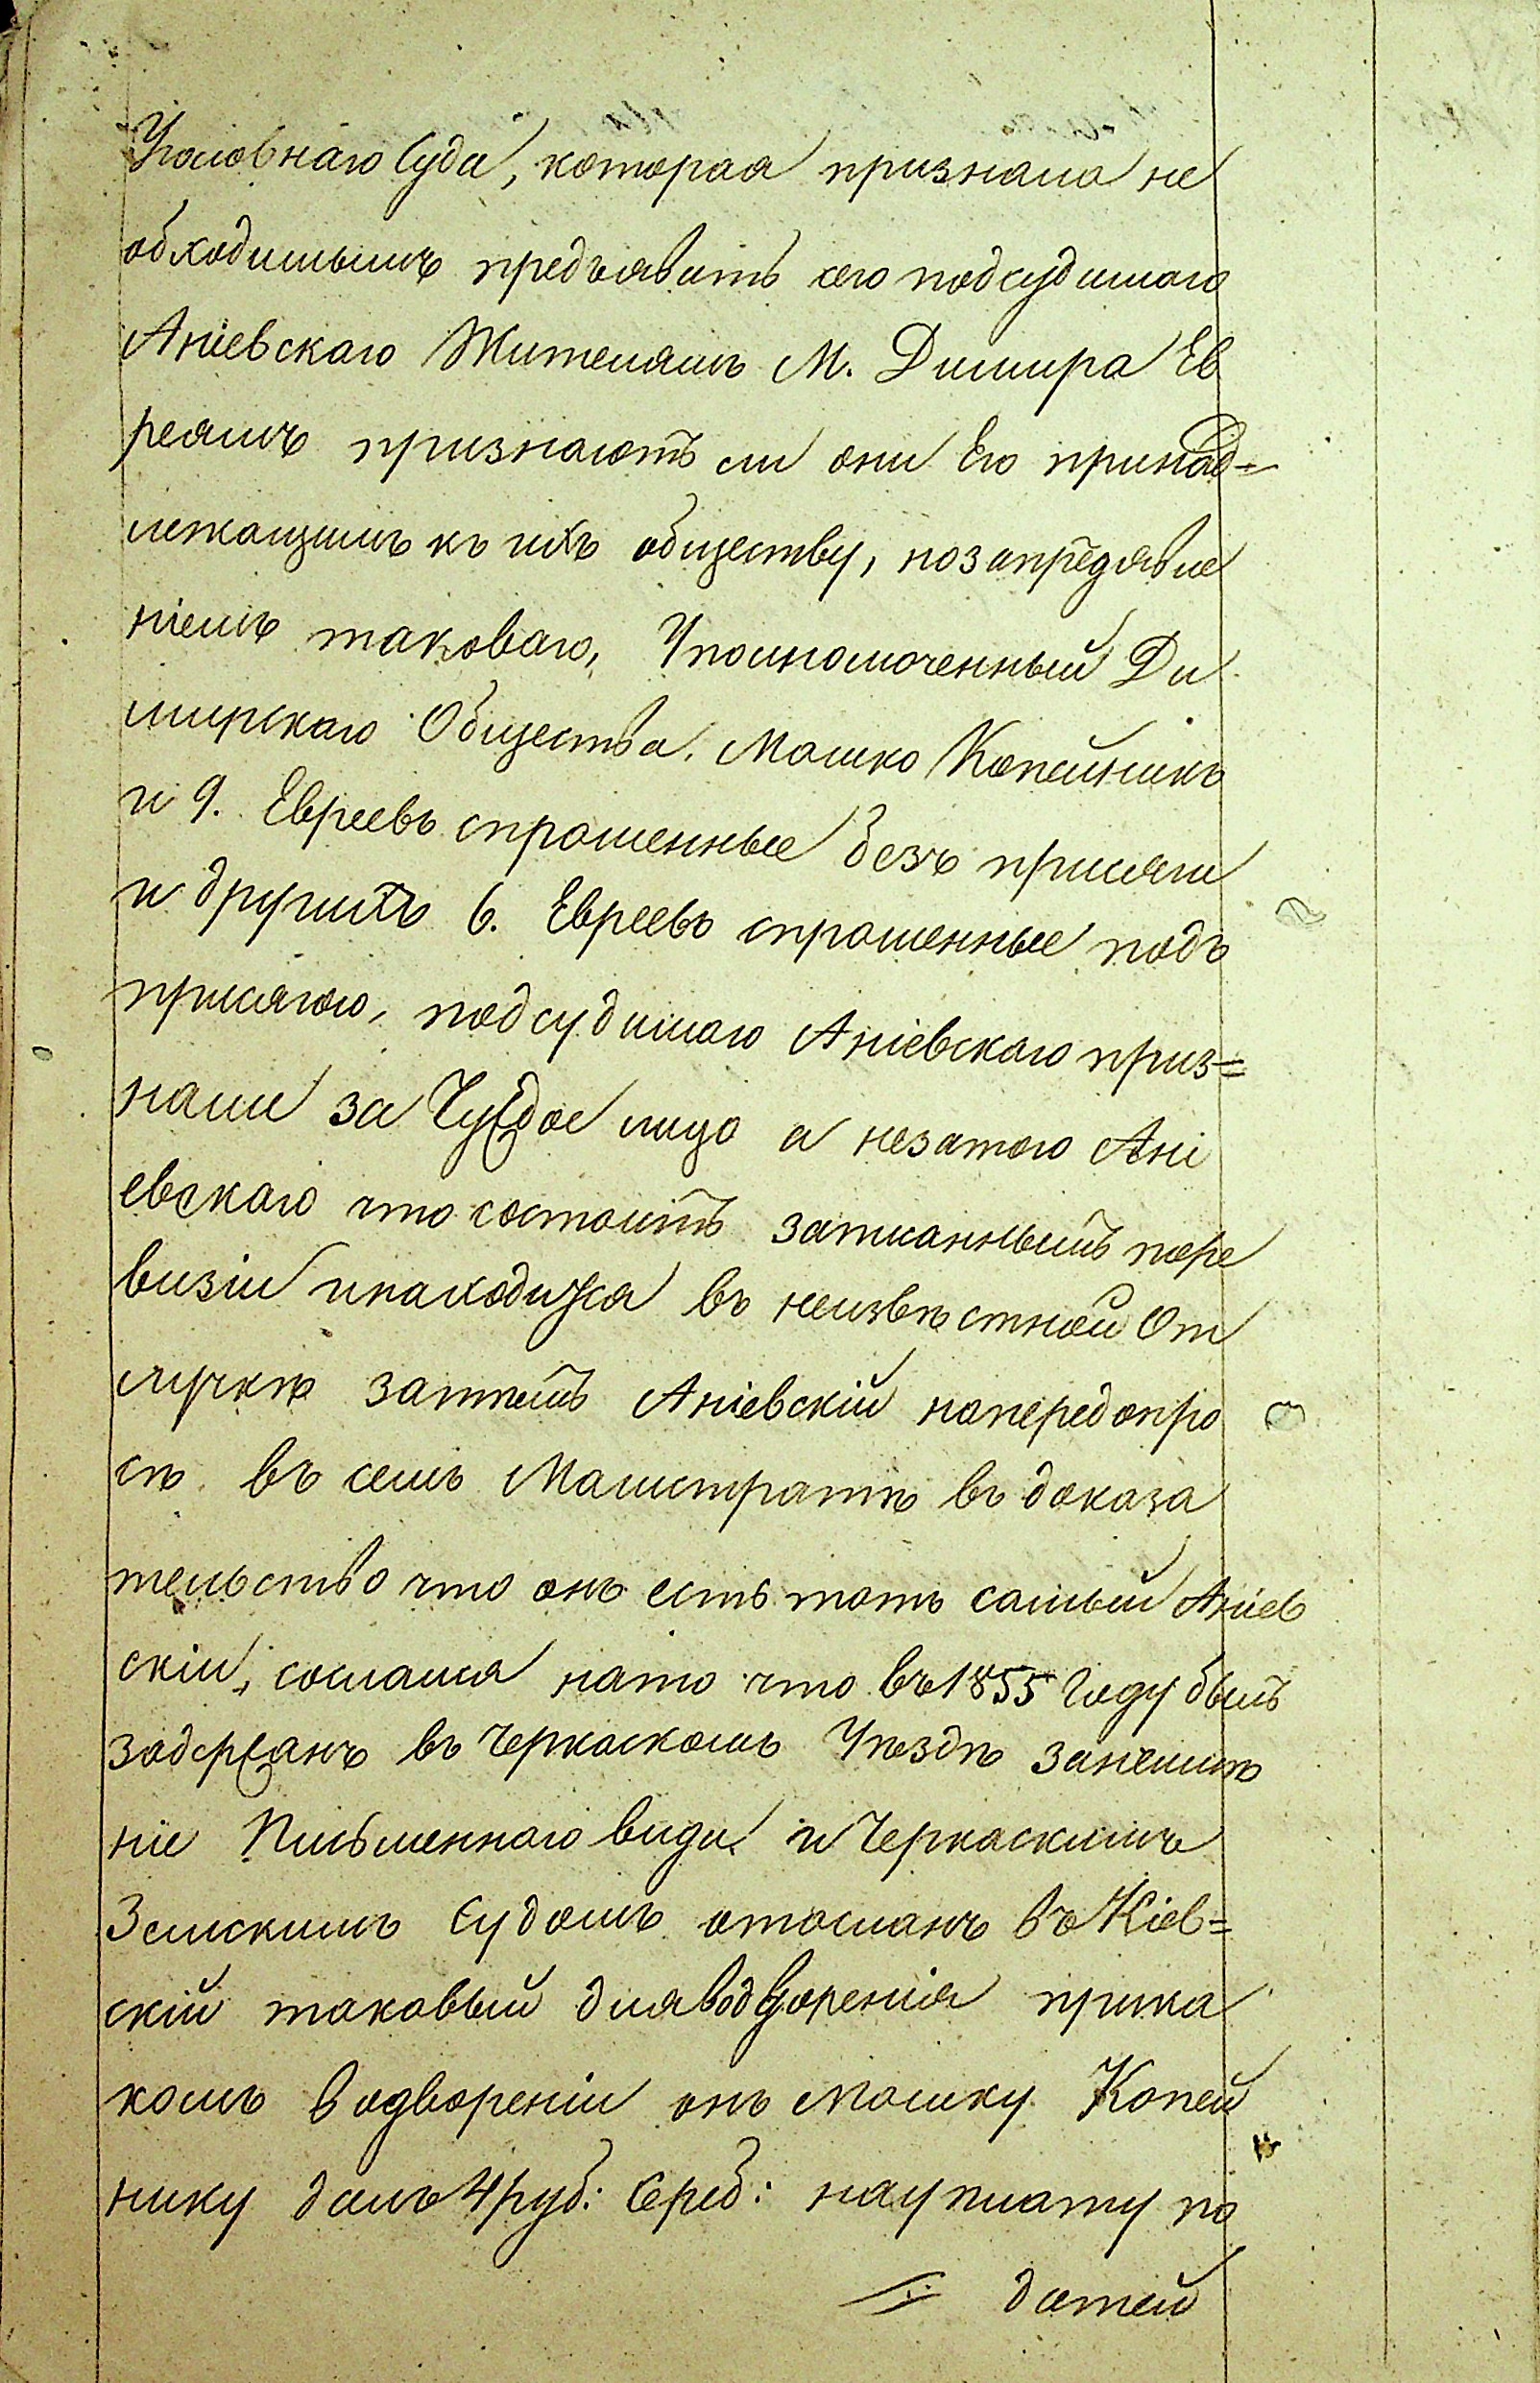 Уголовнаго Суда, которая признала не
обходимымъ предъявить сего подсудимаго
Аніевскаго Жителямъ М. Димира Ев
реямъ признаютъ ли они Его принад=
лежащимъ къ ихъ обществу, но за предъявле
ніемъ таковаго, Уполномоченный Ди
мирскаго Общества. Мошко Копейникъ
и 9. Евреевъ спрошенные безъ присяги
и другихъ 6. Евреевъ спрошенные подъ
присягою, подсудимаго Аніевскаго приз=
нали за Чуждое лицо а не за того Ані
евскаго что состоитъ записаннымъ по ре
визіи и находится въ неизвѣстной От
лучкѣ затѣмъ Аніевскій на передопро
сѣ въ семъ Магистратѣ въ доказа
тельство что онъ есть тотъ самый Аніев
скій, сослался на то что въ 1855 Году былъ
задержанъ въ Черкаскомъ Уѣздѣ за неимѣ
ніе Письменнаго вида и Черкаскимъ
Земскимъ Судомъ отосланъ въ Кіев=
скій таковый для водворенія при ка
комъ водвореніи онъ Мошку Копей
нику далъ 4 руб: Сереб: на уплату по
датей